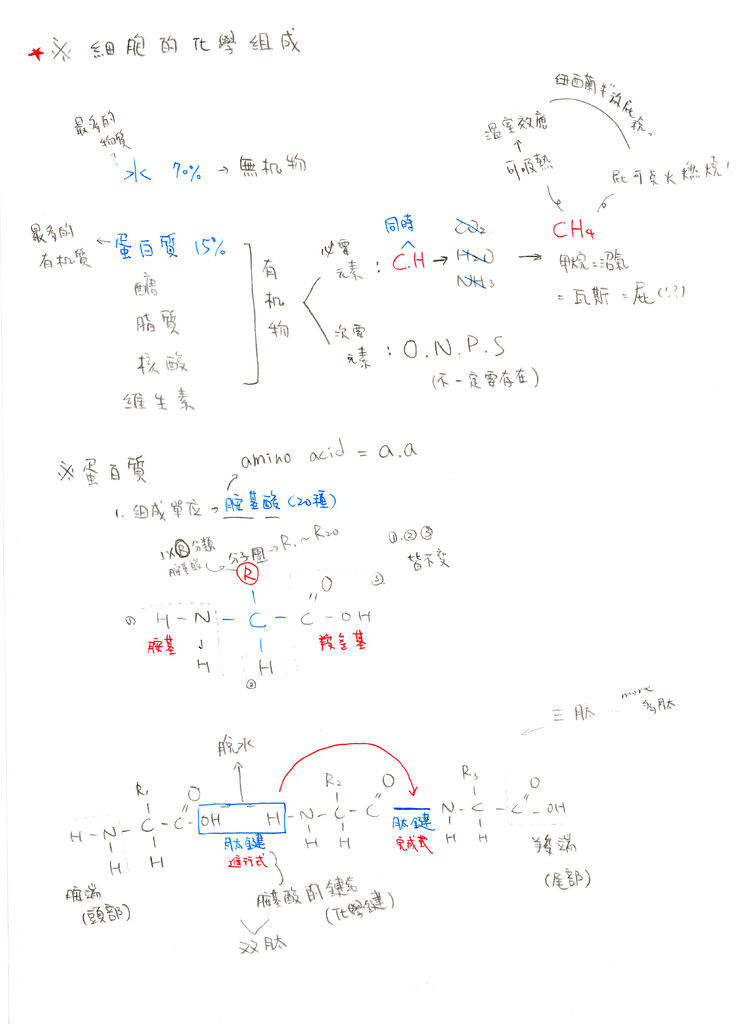 ★※ 細胞的化學組成
最多的
物質
水 70% → 無机物
紐西蘭牛放屁
溫室效應
可吸熱
屁可点火燃燒!
最多的
有机質
蛋白質 15%
醣
脂質
核酸
維生素
有
机
物
必要
元素
: C.H
同時
CO2
H2O
NH3
CH4
甲烷=沼氣
= 瓦斯 = 屁(!?)
次要
元素
: O.N.P.S
(不一定要存在)
※ 蛋白質
amino acid = a.a
1. 組成單位 → 胺基酸 (20種)
以R分類
胺基酸
分子團 → R1~R20
①.②③
皆不变
R
O
③
① H-N-C-C-OH
胺基
羧基
H
H
②
三肽
more
多肽
脫水
R1
O
R2
O
R3
O
H-N-C-C-OH
H-N-C-C
N-C-C-OH
H H
H H
H H
肽鍵
進行式
肽鍵
完成式
胺端
(頭部)
羧端
(尾部)
胺基酸間鏈結
(化學鍵)
双肽